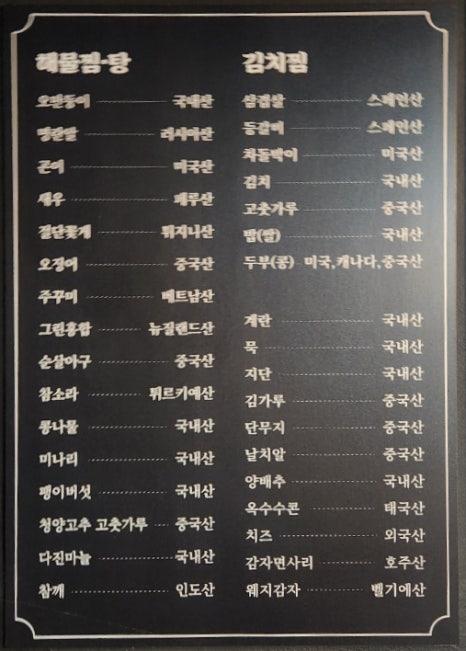 해물찜·탕
오만둥이 국내산
명란알 러시아산
곤이 미국산
새우 페루산
절단꽃게 튀지니산
오징어 중국산
주꾸미 베트남산
그린홍합 뉴질랜드산
순살아구 중국산
참소라 튀르키예산
콩나물 국내산
미나리 국내산
팽이버섯 국내산
청양고추 고춧가루 중국산
다진마늘 국내산
참깨 인도산
김치찜
삼겹살 스페인산
등갈비 스페인산
차돌박이 미국산
김치 국내산
고춧가루 중국산
밥(쌀) 국내산
두부(콩) 미국,캐나다,중국산
계란 국내산
묵 국내산
지단 국내산
김가루 중국산
단무지 중국산
날치알 중국산
양배추 국내산
옥수수콘 태국산
치즈 외국산
감자면사리 호주산
웨지감자 벨기에산